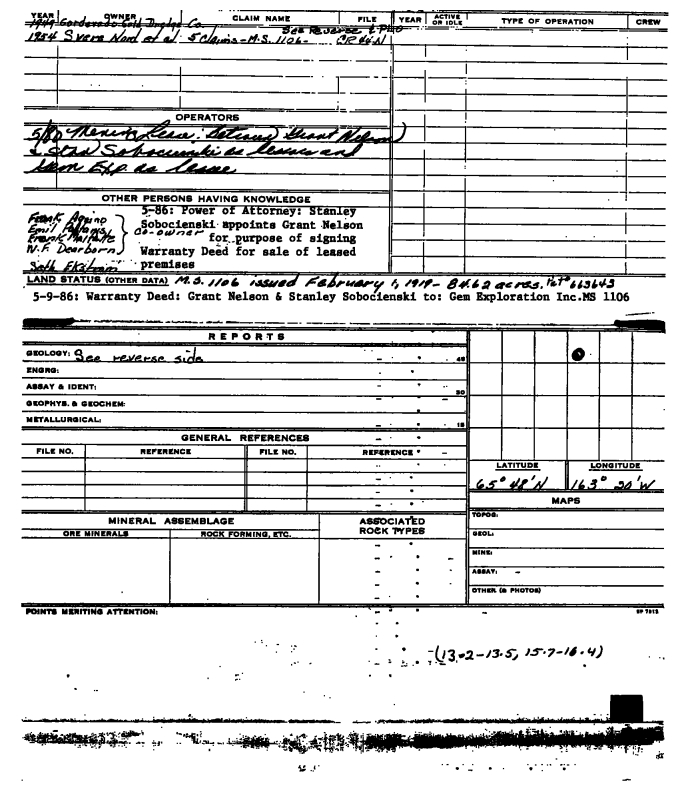 YEAR OWNER CLAIM NAME FILE YEAR ACTIVE OR IDLE TYPE OF OPERATION CREW
1949 Gold Dredge Co.
See Reverse &
1954 Svere Nord et al 5 Claims-M.S. 1106- CR 44-N
OPERATORS
5/80 Mening Lease: Between Grant Nelson)
& Stan Sobocienski as lessors and
Gem Exp. as lessee
OTHER PERSONS HAVING KNOWLEDGE
5-86: Power of Attorney: Stanley
Sobocienski appoints Grant Nelson
for purpose of signing
Warranty Deed for sale of leased
premises
Frank Aquino
Emil
Frank
W.F. Dearborn
co-owner
Seth Ekstrom
LAND STATUS (OTHER DATA) M.S. 1106 issued February 1, 1919- 84.62 acres. Pat# 663643
5-9-86: Warranty Deed: Grant Nelson & Stanley Sobocienski to: Gem Exploration Inc.MS 1106
REPORTS
GEOLOGY: See reverse side 45
ENGRG:
ASSAY & IDENT: 30
GEOPHYS. & GEOCHEM:
METALLURGICAL: 15
GENERAL REFERENCES
FILE NO. REFERENCE FILE NO. REFERENCE
LATITUDE LONGITUDE
65° 48'N 163° 20'W
MAPS
TOPOG:
GEOL:
MINE:
ASSAY:
OTHER (& PHOTOS)
MINERAL ASSEMBLAGE ASSOCIATED ROCK TYPES
ORE MINERALS ROCK FORMING, ETC.
POINTS MERITING ATTENTION:
(13.2-13.5, 15.7-16.4)